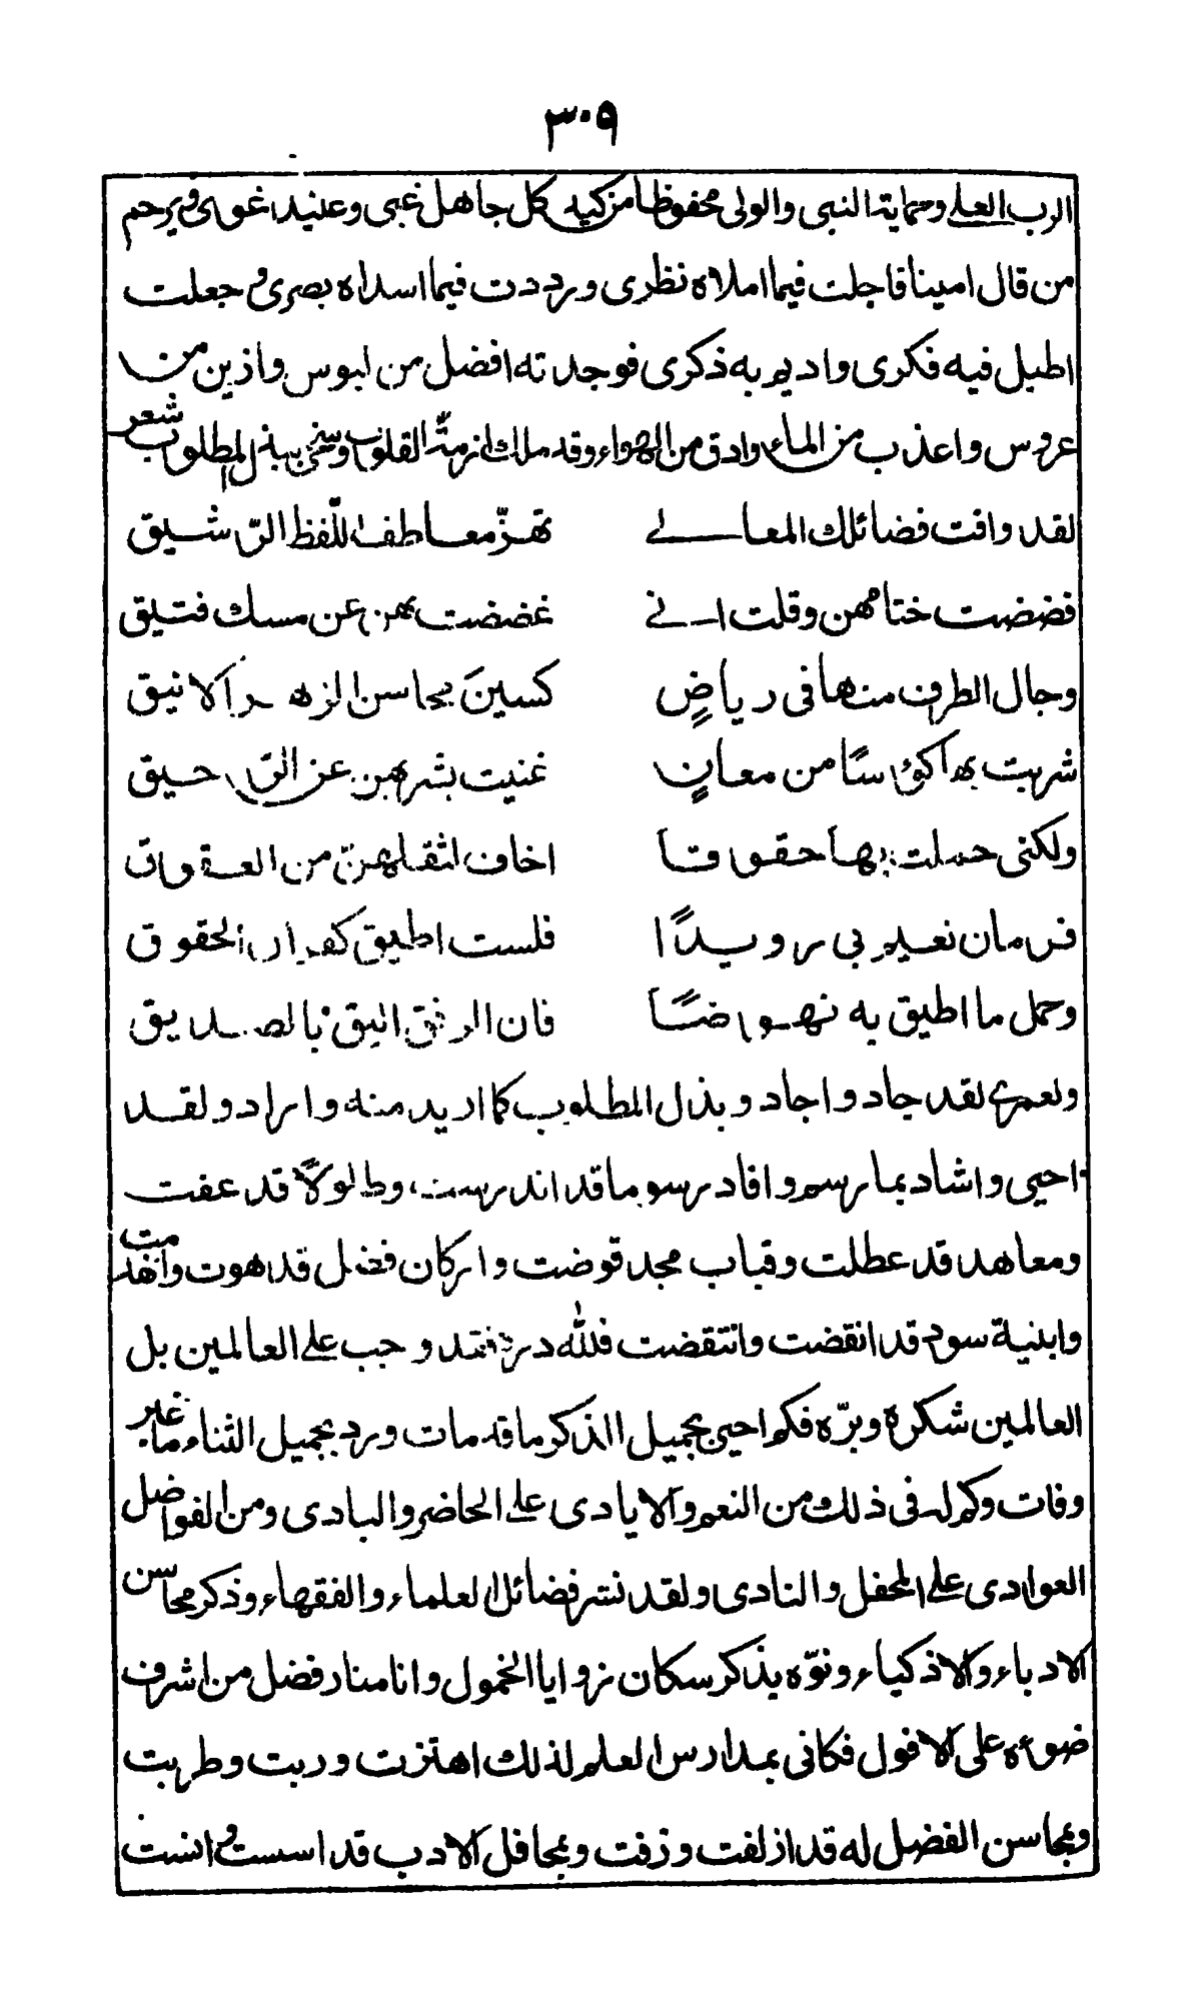 ٣٠٩
الرب العلے وحمایة النبی والولی محفوظا من کید کل جاهل غبی وعنید اغوی ویرحم
من قال امینا فاجلت فیما املاه نظری ورددت فیما اسداه بصری وجعلت
اطیل فیه فکری وادیم به ذکری فوجدته افضل من لبوس وازین من
عروس واعذب من الماء وادق من الهواء وقد ملك ازمّة القلوب وسخی ببذل المطلوب شعر
لقد وافت فضائلك المعالے تهزّ معاطف اللّفظ الرّشیق
فضضت ختامهن وقلت انے غضضت بهن عن مسك فتیق
وجال الطرف منها فی ریاضٍ کسینَ بمحاسن الزهر الانیق
شربت بها کؤسًا من معانٍ غنیت بشربهن عن الرّحیق
ولکنی حملت بها حقوقا اخاف لثقلهنّ من العقوق
فرمان نعیم بی رویدًا فلست اطیق کفران الحقوق
وحمل ما اطیق به نهوضًا فان الرفق الیق بالصدیق
ولعمرے لقد جاد واجاد وبذل المطلوب کما ارید منه واراد ولقد
احیی واشاد بما رسم وافاد رسوما قد اندرست، وطلولاً قد عفت
ومعاهد قد عطلت وقباب مجد قوضت وارکان فضل قد هوت وانهدمت
وابنیة سودد قد انقضت وانتقضت فللّه درّه فقد وجب علے العالمین بل
العالمین شکره وبرّه فکم احیی بجمیل الذکر ما قد مات ورد بجمیل الثناء ما غبر
وفات وکم له فی ذلك من النعم والایادی علے الحاضر والبادی ومن الفواضل
العوادی علے المحفل والنادی ولقد نشر فضائل العلماء والفقهاء وذکر محاسن
الادباء والاذکیاء ونوّه بذکر سکان زوایا الخمول وانا منار فضل من اشرف
ضوءه علی الافول فکانی بمدارس العلم لذلك اهتزت وربت وطربت
وبمحاسن الفضل له قد ازلفت وزفت وبمحافل الادب قد اسست وانست